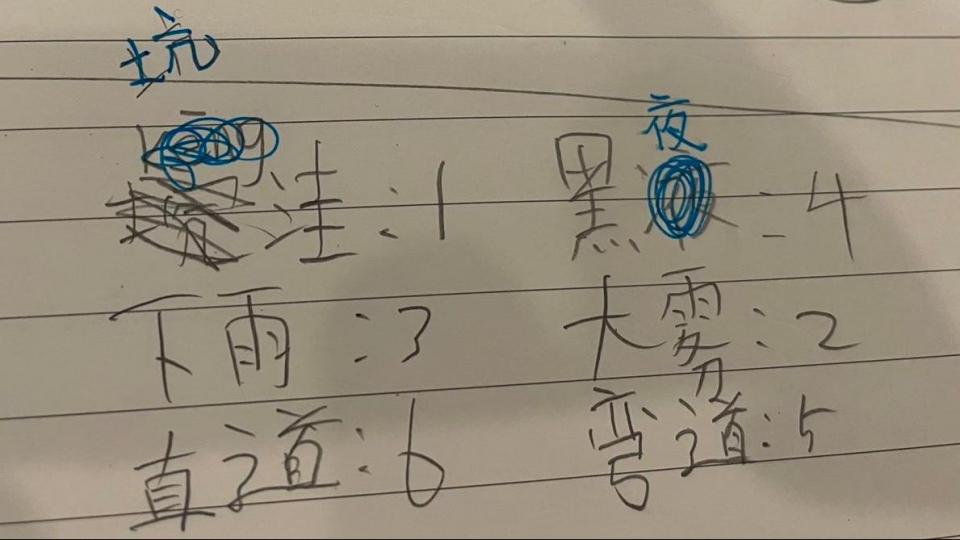 坑
洼:1
夜
黑:4
下雨:3 大雾:2
直道:6 弯道:5